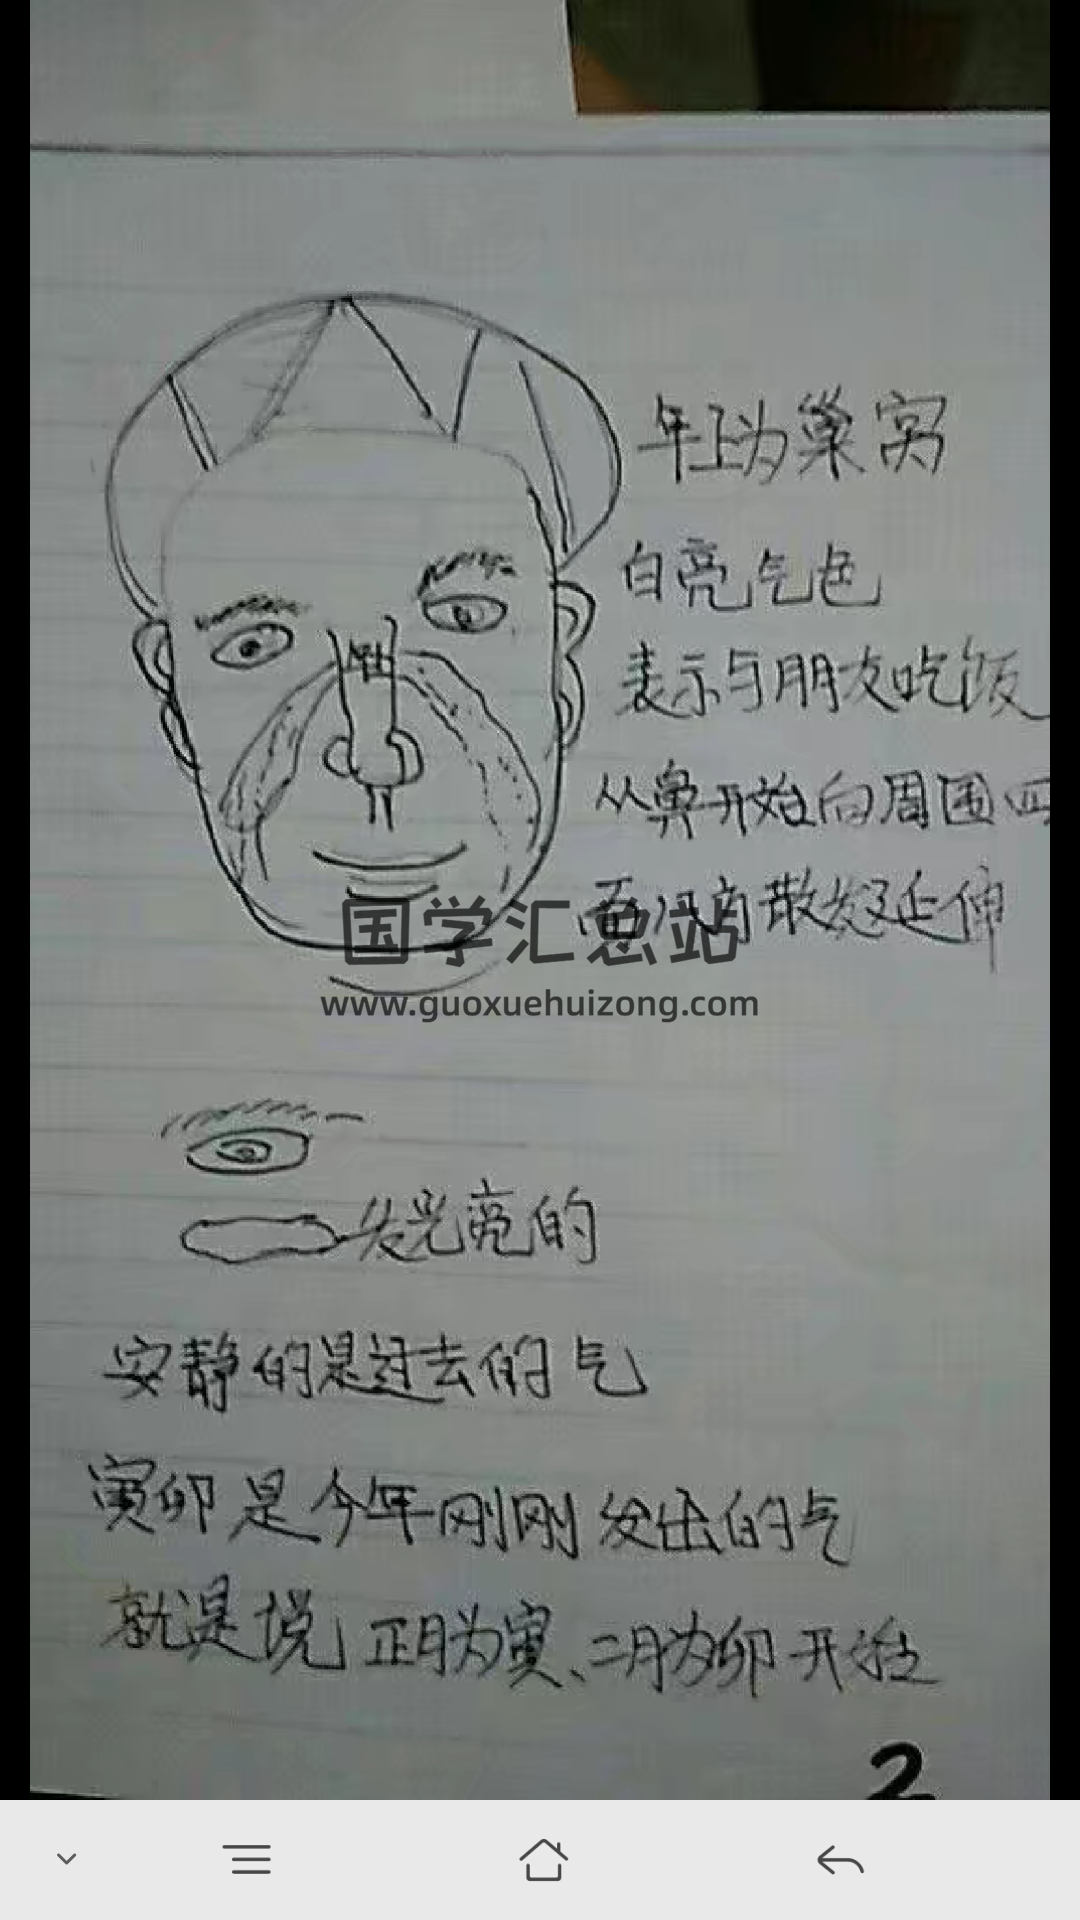 年上为巢窝
白亮气色
表示与朋友吃饭
从鼻开始向周围四
面八方散发延伸
年上
国学汇总站
www.guoxuehuizong.com
发光亮的
安静的是过去的气
寅卯是今年刚刚发出的气
就是说正月为寅、二月为卯开始
2